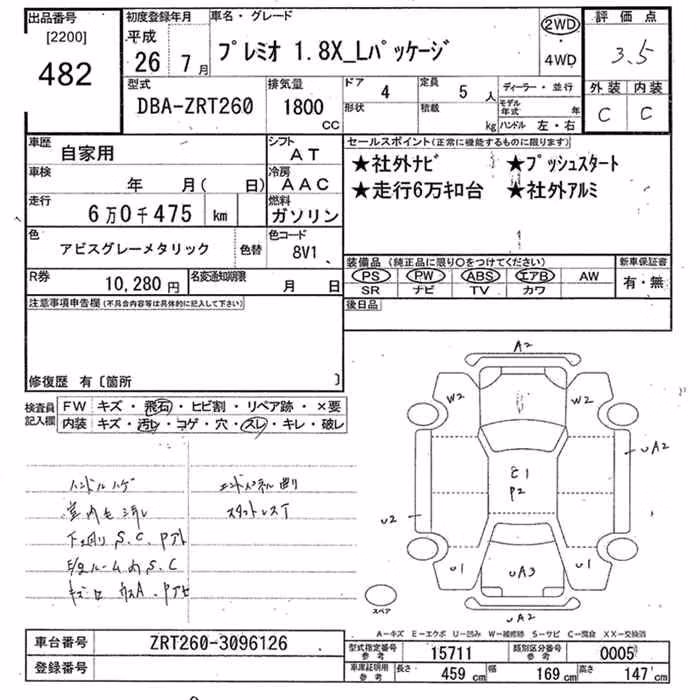 出品番号
[2200]
482
初度登録年月
平成
26 7月
車名・グレード
プレミオ 1.8X_Lパッケージ
2WD
4WD
評価点
3.5
型式
DBA-ZRT260
排気量
1800
CC
ドア 4
定員 5 人
形状
積載 kg
ディーラー・並行
モデル年式 年
ハンドル 左・右
外装 内装
C C
車歴
自家用
シフト
AT
車検
年 月( 日)
冷房
AAC
走行
6万0千475 km
燃料
ガソリン
色
アビスグレーメタリック
色替
色コード
8V1
R券
10,280円
名変通知期限
月 日
セールスポイント(正常に機能するものに限ります)
★社外ナビ ★プッシュスタート
★走行6万キロ台 ★社外アルミ
装備品 (純正品に限り○をつけてください)
新車保証書
PS PW ABS エアB AW
SR ナビ TV カワ
有・無
後日品
注意事項申告欄(不具合内容等は具体的に記入して下さい)
修復歴 有〔箇所 〕
検査員記入欄
FW キズ・飛石・ヒビ割・リペア跡・×要
内装 キズ・汚レ・コゲ・穴・スレ・キレ・破レ
ハンドルハゲ
室内モ汚レ
下廻り S.C.Pアト
E/gルーム内 S.C
エンドパネル曲り
スタットレスT
A2
W2
W2
UA2
E1
P2
U2
U1
UA3
U1
UA2
スペア
A-キズ E-エクボ U-凹み W-補修跡 S-サビ C-腐食 XX-交換済
車台番号
ZRT260-3096126
登録番号
型式指定番号参考
15711
類別区分番号参考
0005
車庫証明用参考
長さ 459 cm
幅 169 cm
高さ 147 cm